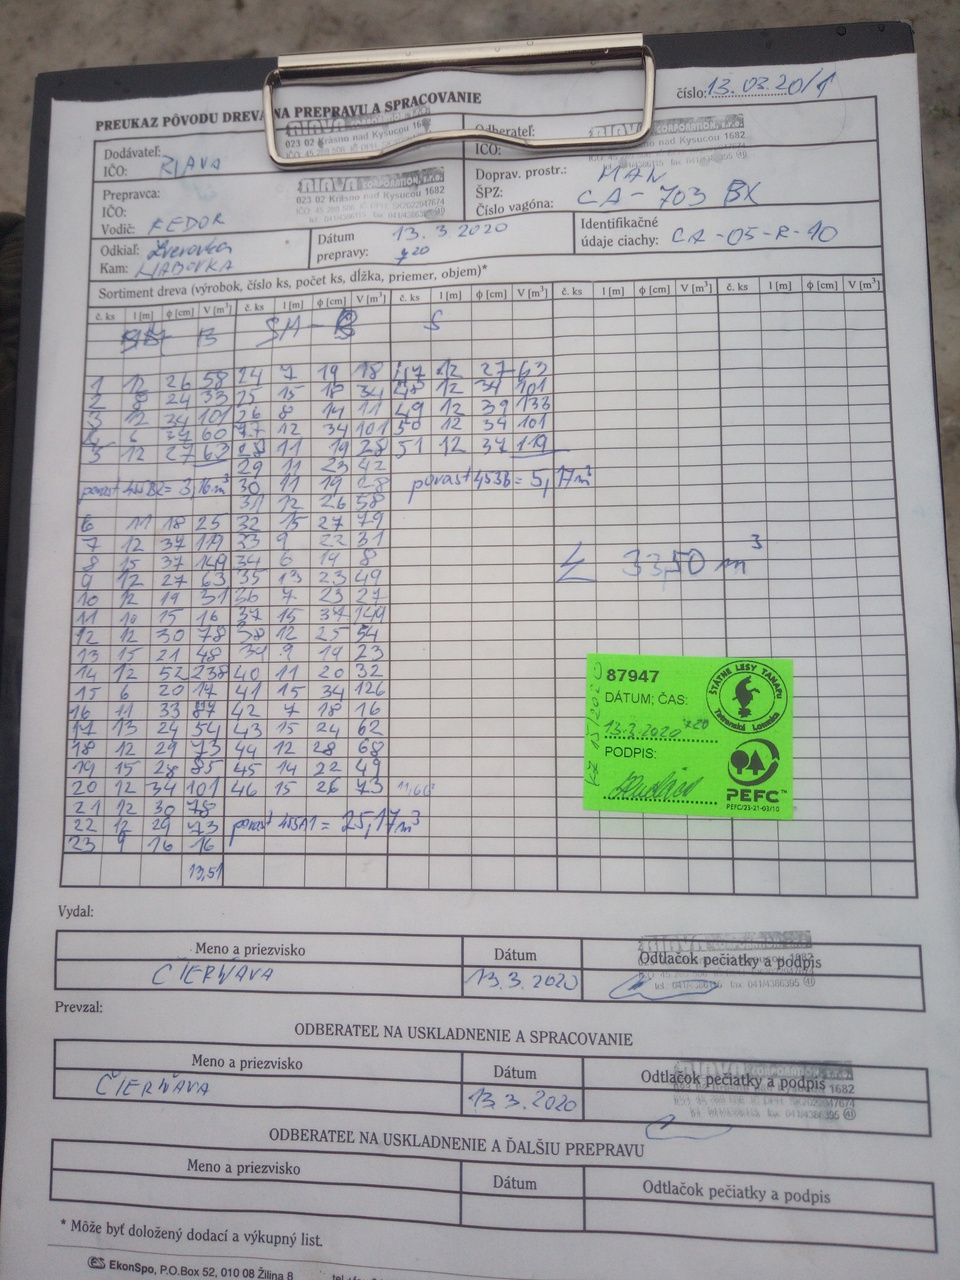 číslo: 13.03.20/1
PREUKAZ PÔVODU DREVA NA PREPRAVU A SPRACOVANIE
Dodávateľ:
IČO: RIAVA
023 02 Krásno nad Kysucou
Odberateľ:
IČO:
CORPORATION, s.r.o.
Prepravca:
IČO:
Vodič: FEDOR
RIAVA CORPORATION, s.r.o.
023 02 Krásno nad Kysucou 1682
Doprav. prostr.: MAN
ŠPZ: CA-703 BX
Číslo vagóna:
Odkiaľ: Zverovka
Kam: HABOVKA
Dátum prepravy: 13. 3 2020
7 20
Identifikačné údaje ciachy: CA-05-R-10
Sortiment dreva (výrobok, číslo ks, počet ks, dĺžka, priemer, objem)*
č. ks l [m] ϕ [cm] V [m³] č. ks l [m] ϕ [cm] V [m³] č. ks l [m] ϕ [cm] V [m³] č. ks l [m] ϕ [cm] V [m³] č. ks l [m] ϕ [cm] V [m³]
B S
1 12 26 58 24 7 19 18 47 12 27 63
2 8 24 33 25 15 18 34 48 12 34 101
3 12 34 101 26 8 14 11 49 12 39 133
4 6 37 60 27 12 34 101 50 12 34 101
5 12 27 63 28 11 19 28 51 12 37 119
29 11 23 42
porast 455B2 = 3,16 m³ 30 11 19 28 porast 453b = 5,17 m³
31 12 26 58
6 11 18 25 32 15 27 79
7 12 37 119 33 9 22 31
8 15 37 149 34 6 14 8
Σ 33,50 m³
9 12 27 63 35 13 23 49
10 12 19 31 36 7 23 27
11 10 15 16 37 15 37 149
12 12 30 78 38 12 25 54
13 15 21 48 39 9 19 23
14 12 52 238 40 11 20 32
15 6 20 17 41 15 34 126
16 11 33 87 42 7 18 16
17 13 24 54 43 15 24 62
18 12 29 73 44 12 28 68
19 15 28 85 45 14 22 49
20 12 34 101 46 15 26 73 11,66
21 12 30 78
22 12 29 73 porast 455A1 = 25,17 m³
23 9 16 16
13,51
87947
DÁTUM; ČAS:
13.3.2020 7 20
PODPIS:
ŠTÁTNE LESY TANAPu
Tatranská Lomnica
PEFC™
PEFC/23-21-03/10
Vydal:
Meno a priezvisko Dátum Odtlačok pečiatky a podpis
ČIERŇAVA 13.3.2020
Prevzal:
ODBERATEĽ NA USKLADNENIE A SPRACOVANIE
Meno a priezvisko Dátum Odtlačok pečiatky a podpis
ČIERŇAVA 13.3.2020
ODBERATEĽ NA USKLADNENIE A ĎALŠIU PREPRAVU
Meno a priezvisko Dátum Odtlačok pečiatky a podpis
* Môže byť doložený dodací a výkupný list.
ES EkonSpo, P.O.Box 52, 010 08 Žilina 8